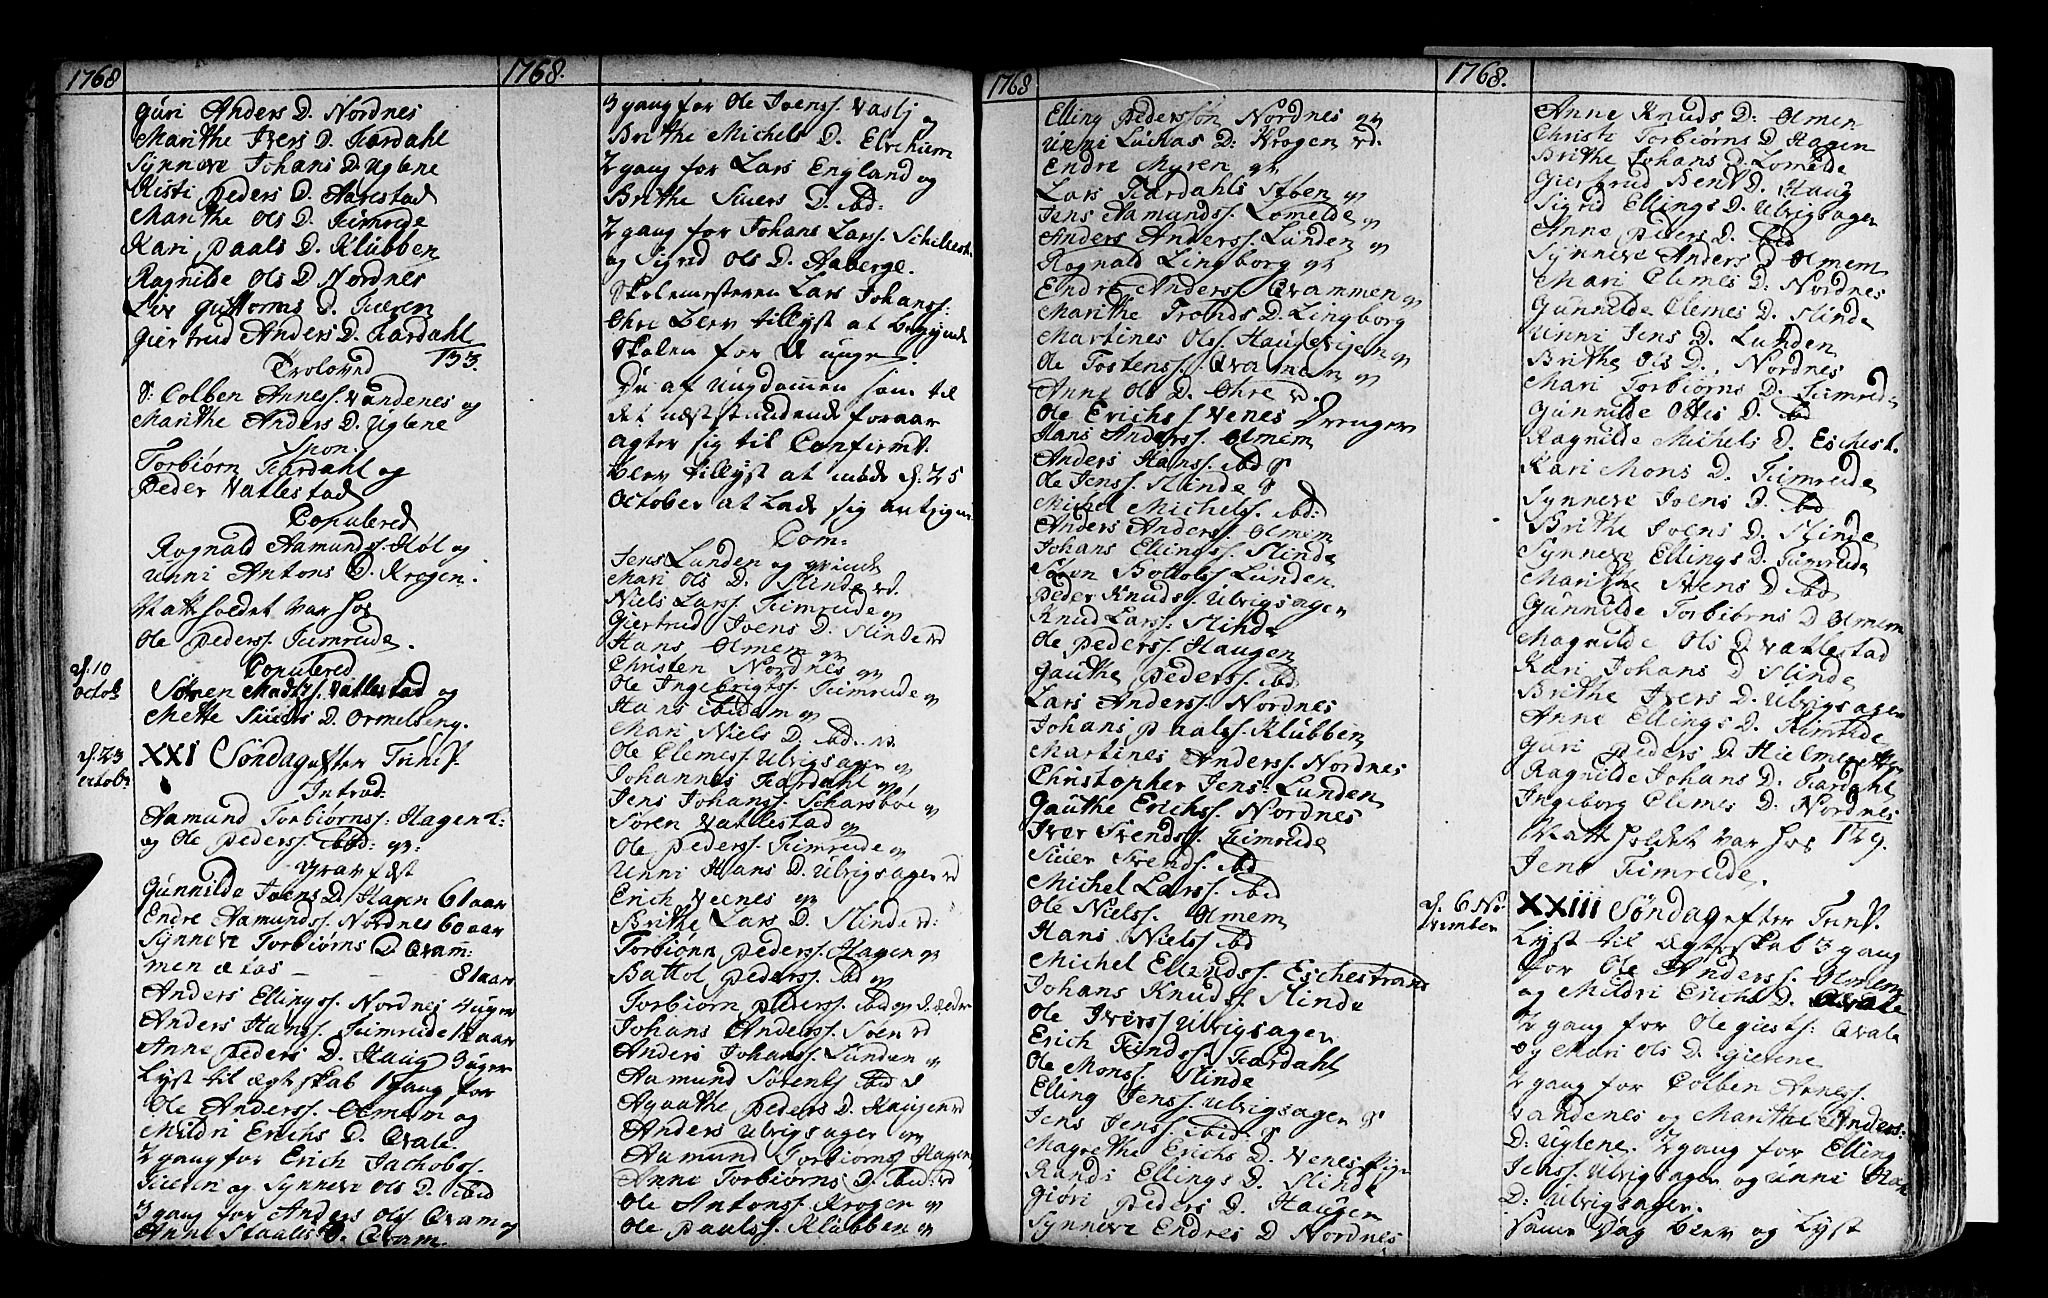 1768
Guri Anders D. Nordnes
Marithe Ivers D. Fardahl
Synneve Johans D. Uglene
Kisti Peders D. Aarestad
Marithe Ols D. Timreide
Kari Paals D. Klubben
Ragnilde Ols D. Nordnes
Liv Guttorms D. Fieren
Giertrud Anders D. Fardahl
133.
Troloved
S: Colben Arness. Vandenes og
Marithe Anders D. Uglene
Spon:
Torbiørn Fardahl og
Peder Vatlestad
Copulered
Rognald Aamundss. Høl og
Unni Antons D. Krogen.
Natt holdet var hos
Ole Peders. Timreide.
d. 10 octob:
Copulered
Søren Madss. Vatlestad og
Mette Siurs D. Ormelseng.
d. 23 octob:
XXI Søndag efter Trinit.
Introd:
Aamund Torbiørnss: Hagen k:
og Ole Peders. ibid: gr:
Grafæst
Gunnilde Joens D. Hagen 61 aar
Endre Aamundss. Nordnes 60 aar
Synneve Torbiørns D. Qvam:
men ætas - - - 81 aar
Anders Ellingss. Nordnes 4 uger
Anders Hanss. Timreide 12 aar
Anne Peders D. Haug 3 uger
Lyst til ægteskab 1 gang for
Ole Anderss. Olmem og
Mildri Erichs D. Qvale
2 gang for Erich Jachobss.
og Synneve Ols D. ibid
3 gang for Anders Ols Qvam og
Anne Staals D. Qvam.
1768.
3 gang for Ole Joenss. Vastj og
Brithe Michels D. Elvehiem
2 gang for Lars England og
Brithe Siurs D. ibid:
2 gang for Johans Larss. Schilbest.
og Sigrid Ols D. Aaberge.
Skolemesteren Lars Johanss:
Ohre blev tillyst at begynde
Skolen for de unge.
De af Ungdommen som til
det næststundende foraar
agter sig til Confirmt.
blev tillyst at møde d: 25
October at lade sig antegne.
Com:
Jens Lunden og qvinde
Mari Ols D. Slinde rd.
Niels Larss. Timreide gr
Giertrud Joens D. Slinde rd
Hans Olmem gr
Christen Nordnes gr
Ole Ingebrigts. Timreide gr
Hans ibidem gr
Mari Niels D. ibd. rd.
Ole Clemess. Ulvigsager gr
Johannes Fardahl gr
Jens Johanss. Scharsbøe gr
Søren Vatlestad gr
Ole Peders. Timreide gr
Unni Hans D. Ulvigsager rd
Erich Veenes gr
Brithe Lars D. Slinde rd:
Torbiørn Peders. Hagen gr
Battol Peders. ibd gr
Torbiørn Peders. ibid
Johans Anderss. Soen rd
Anders Johanss. Lunden gr
Aamund Sørens ibid
Agaathe Peders D. Krogen rd
Anders Ulvigsager gr
Aamund Torbiørns. Hagen
Anne Torbiørns D. ibid: rd
Ole Antons. Krogen gr
Ole Paals. Klubben gr
1768
Elling Pederssøn Nordnes gr
Unni Luckas D: Krogen rd.
Endre Myren gr
Lars Fardahls Støen gr
Jens Aamundss. Lomelde gr
Anders Anderss. Lunden gr
Rognald Lingborg gr
Endre Anderss. Qvammen gr
Marithe Tronds D. Lingborg
Martines Olss. Haugevigen gr
Ole Tostenss. Qvammen gr
Anne Ols D. Ohre rd.
Ole Erichss Venes Drenger
Hans Anderss. Olmem
Anders Hanss. ibd
Ole Jenss. Slinde
Michel Michelss. ibd:
Anders Anderss. Olmem
Johans Ellings. Slinde
Søren Bottols. Lunden
Peder Knuds. Ulvigsager
Knud Larss. Slinde
Ole Peders. Haugen
Gauthe Peders. ibid
Lars Anderss. Nordnes
Johans Paals. Klubben
Martines Anderss. Nordnes
Christopher Jens: Lunden
Gauthe Erichs. Nordnes
Iver Svends. Timreide
Siur Svends. ibd
Michel Larss. ibid
Ole Nielss. Olmem
Hans Niels ibd
Michel Ellends. Eschestrand
Johans Knuds. Slinde
Ole Iverss. Ulvigsager
Erich Finds. Fardahl
Ole Monss. Slinde
Elling Jenss: Ulvigsager
Jens Jenss. ibid
Magrethe Erichs D. Venes Piger
Randi Ellings D. Slinde
Giøri Peders D. Haugen
Synneve Endres D Nordnes
1768.
Anne Knuds D: Olmem
Christi Torbiørns D. Hagen
Brithe Johans D. Lomelde
Giertrud Bent D. Haug
Sigrid Ellings D. Ulvigsager
Anne Peders D. ibid
Synneve Anders D. Olmem
Mari Clemes D: Nordnes
Gunnilde Clemes D: Slinde
Unni Jens D. Lunden
Brithe Ols D. Nordnes
Mari Torbiørns D. Timreide
Gunnilde Ottis D. ibd
Ragnilde Michels D. Eschest.
Kari Mons D. Timreide
Synneve Joens D. ibd
Brithe Joens D. Slinde
Synneve Ellings D. Timreide
Marithe Stens D ibd
Gunnilde Torbiørns D Olmem
Magnilde Ols D. Vatlestad
Kari Johans D Slinde
Brithe Ivers D. Ulvigsager
Anne Ellings D. Timreide
Guri Peders D.
Ragnilde Johans D. Fardahl
Ingeborg Clemes D: Nordnes
129.
Natt holdet var hos
Jens Timreide.
d. 6 No
vember
XXIII Søndag efter Trinit.
Lyst til ægteskab 3 gang
for Ole Anderss. Olmem
og Mildri Erichs D. Qvale
2 gang for Ole Giests: Qvale
og Mari Ols D.
2 gang for Colben Arness.
Vandenes og Marithe Anders:
D: Uglene. 2 gang for Elling
Jenss. Ulvigsager og Unni Han
D: Ulvigsager.
Samme Dag blev og Lyst